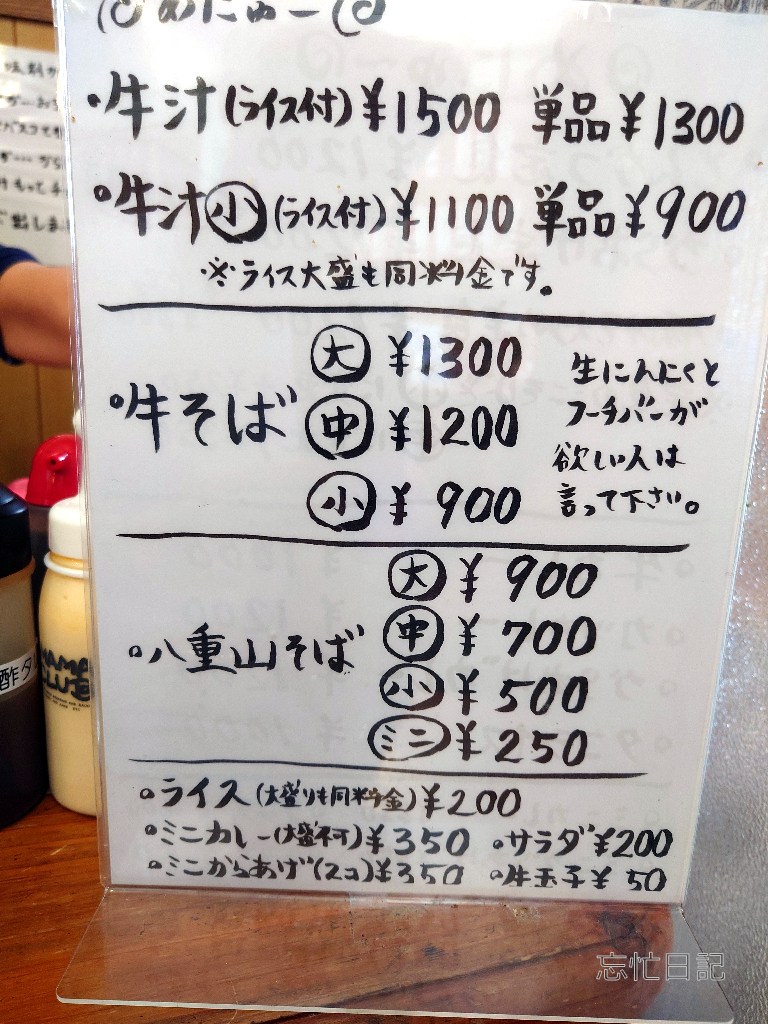 めにゅー
・牛汁(ライス付)¥1500 単品¥1300
・牛汁小(ライス付)¥1100 単品¥900
※ライス大盛も同料金です。
・牛そば 大 ¥1300
中 ¥1200
小 ¥900
生にんにくと
フーチバーが
欲しい人は
言って下さい。
・八重山そば 大 ¥900
中 ¥700
小 ¥500
ミニ ¥250
・ライス(大盛りも同料金)¥200
・ミニカレー(大盛不可)¥350 ・サラダ¥200
・ミニからあげ(2コ)¥350 ・生玉子¥50
忘忙日記